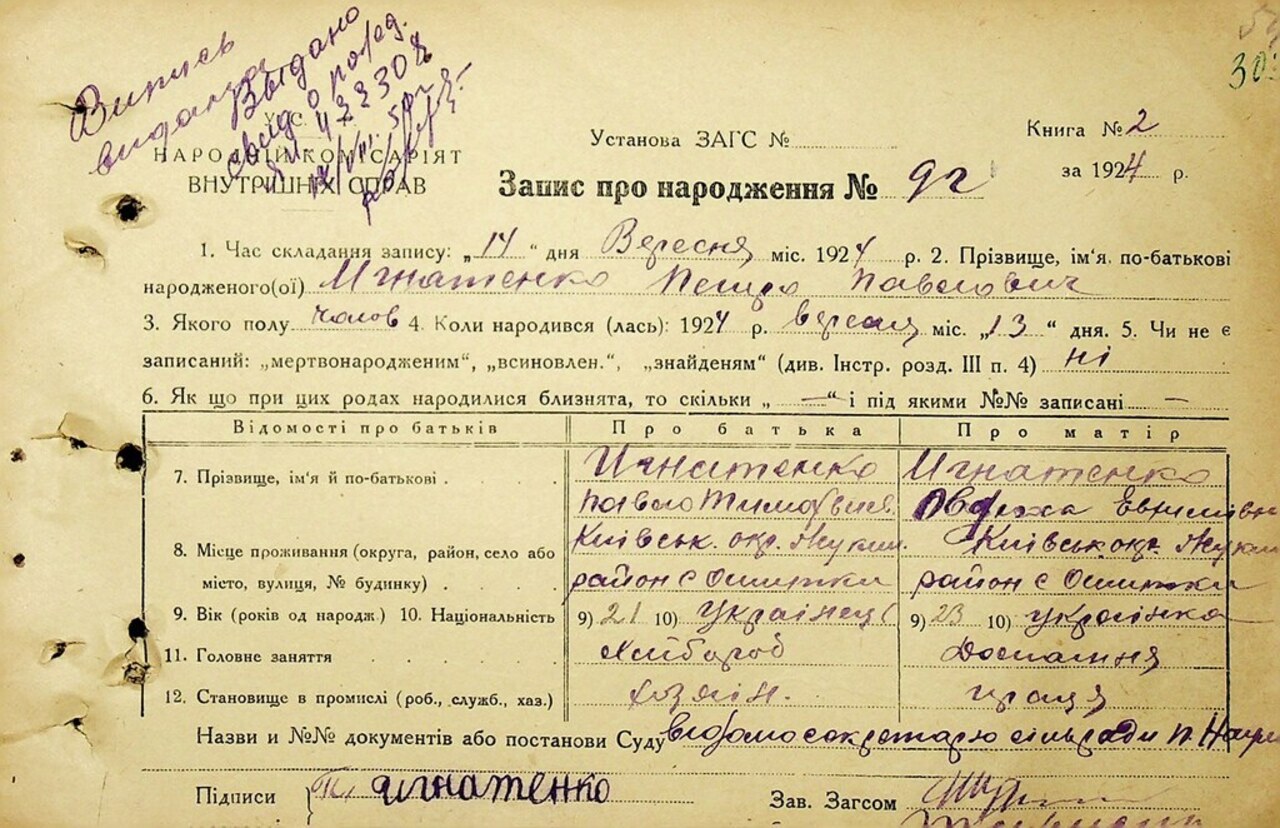 Випись
видана
Выдано
свид о рожд.
30
Книга № 2
за 1924 р.
У.С.
НАРОДНІЙ КОМІСАРІЯТ
ВНУТРИШНІХ СПРАВ
Установа ЗАГС №
Запис про народження № 92
1. Час складання запису: „14“ дня Вересня міс. 1924 р. 2. Прізвище, ім'я, по-батькові
народженого(ої) Игнатенко Петро Павлович
3. Якого полу чолов 4. Коли народився (лась): 1924 р. вересня міс. „13“ дня. 5. Чи не є
записаний: „мертвонародженим“, „всиновлен.“, „знайденям“ (див. Інстр. розд. III п. 4) ні
6. Як що при цих родах народилися близнята, то скільки „ — “ і під якими №№ записані —
Відомості про батьків Про батька Про матір
7. Прізвище, ім'я й по-батькові Игнатенко Игнатенко
Павло Тимофіїв
8. Місце проживання (округа, район, село або Київськ. окр. Київськ. окр.
місто, вулиця, № будинку) район с Ошитки район с Ошитки
9. Вік (років од народж) 10. Національність 9) 21 10) Українець 9) 23 10) українка
11. Головне заняття Хлібороб Домашня
12. Становище в промислі (роб., служб., хаз.) хозяін. праця
Назви и №№ документів або постанови Суду відомо секретарю сільради
Підписи П. Игнатенко Зав. Загсом